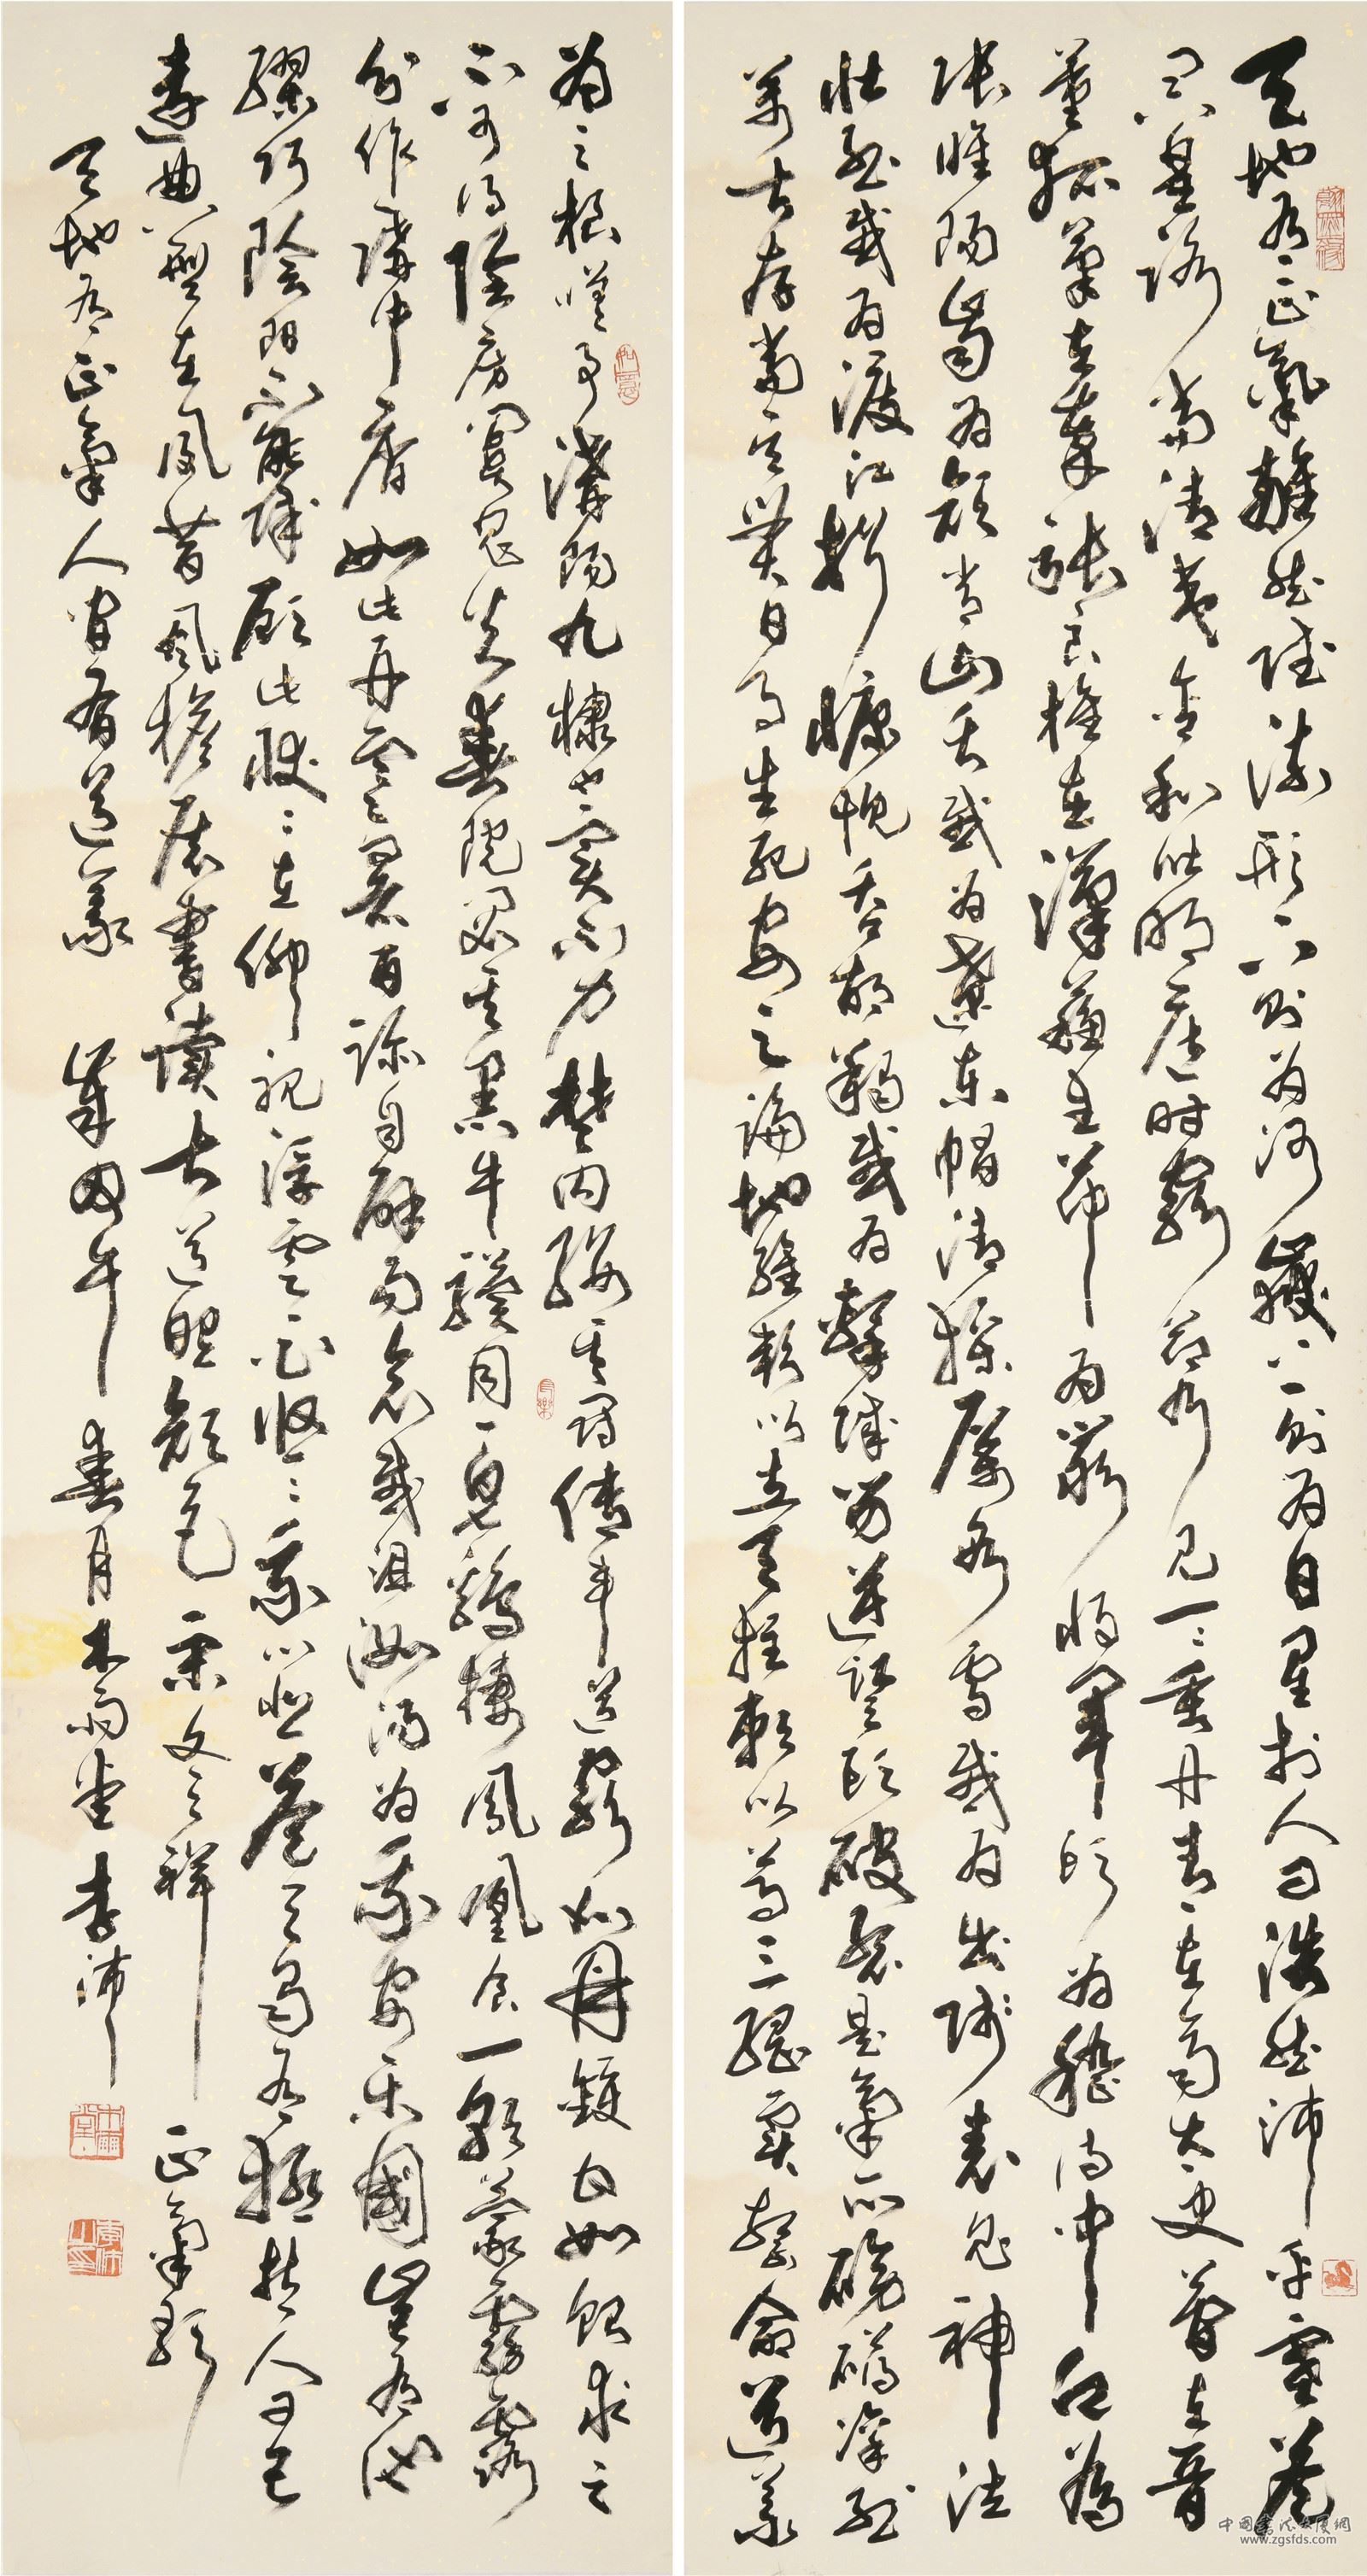 天地有正氣雜然賦流形下則為河嶽上則為日星於人曰浩然沛乎塞蒼
冥皇路當清夷含和吐明庭時窮節乃見一一垂丹青在齊太史簡在晉
董狐筆在秦張良椎在漢蘇武節為嚴將軍頭為嵇侍中血為
張睢陽齒為顏常山舌或為遼東帽清操厲冰雪或為出師表鬼神泣
壯烈或為渡江楫慷慨吞胡羯或為擊賊笏逆豎頭破裂是氣所磅礴凜烈
萬古存當其貫日月生死安足論地維賴以立天柱賴以尊三綱實繫命道義
為之根嗟予遘陽九隸也實不力楚囚纓其冠傳車送窮北鼎鑊甘如飴求之
不可得陰房闃鬼火春院閟天黑牛驥同一皂鷄棲鳳凰食一朝蒙霧露
分作溝中瘠如此再寒暑百沴自辟易哀哉沮洳場為我安樂國豈有他
繆巧陰陽不能賊顧此耿耿在仰視浮雲白悠悠我心悲蒼天曷有極哲人日已
遠典型在夙昔風檐展書讀古道照顏色 宋文天祥 正氣歌
天地有正氣人間有道義 歲甲午春月木雨堂李沛
中國書法大廈網
www.zgsfds.com